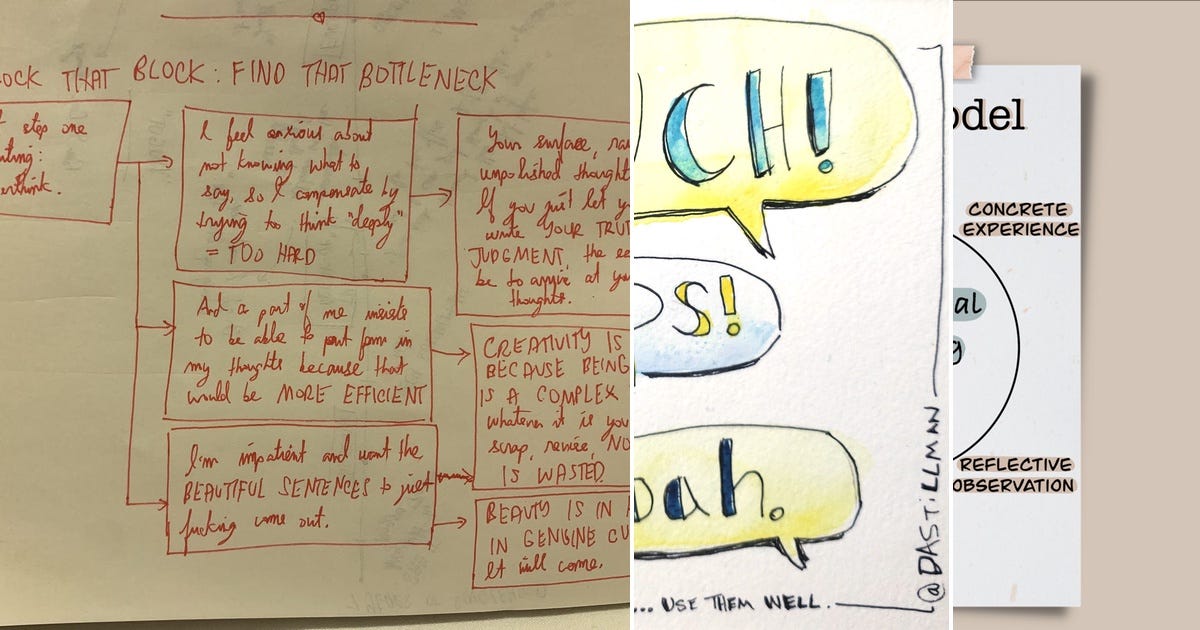 OCK THAT BLOCK: FIND THAT BOTTLENECK
step one
enthink.
I feel anxious about
not knowing what to
say, so I compensate by
trying to think "deeply"
= TOO HARD
And a part of me insists
to be able to put form in
my thoughts because that
would be MORE EFFICIENT
I'm impatient and want the
BEAUTIFUL SENTENCES to just
fucking come out.
Your surface, ra
unpolished thought
If you just let y
write YOUR TRUT
JUDGMENT, the
be to arrive at you
thoughts.
CREATIVITY IS
BECAUSE BEING
IS A COMPLEX
whatever it is you
scrap, revise, NO
IS WASTED.
BEAUTY IS IN
IN GENUINE CU
It will come.
CH!
OS!
oah.
... USE THEM WELL.
@DASTILLMAN
odel
CONCRETE
EXPERIENCE
al
g
REFLECTIVE
OBSERVATION